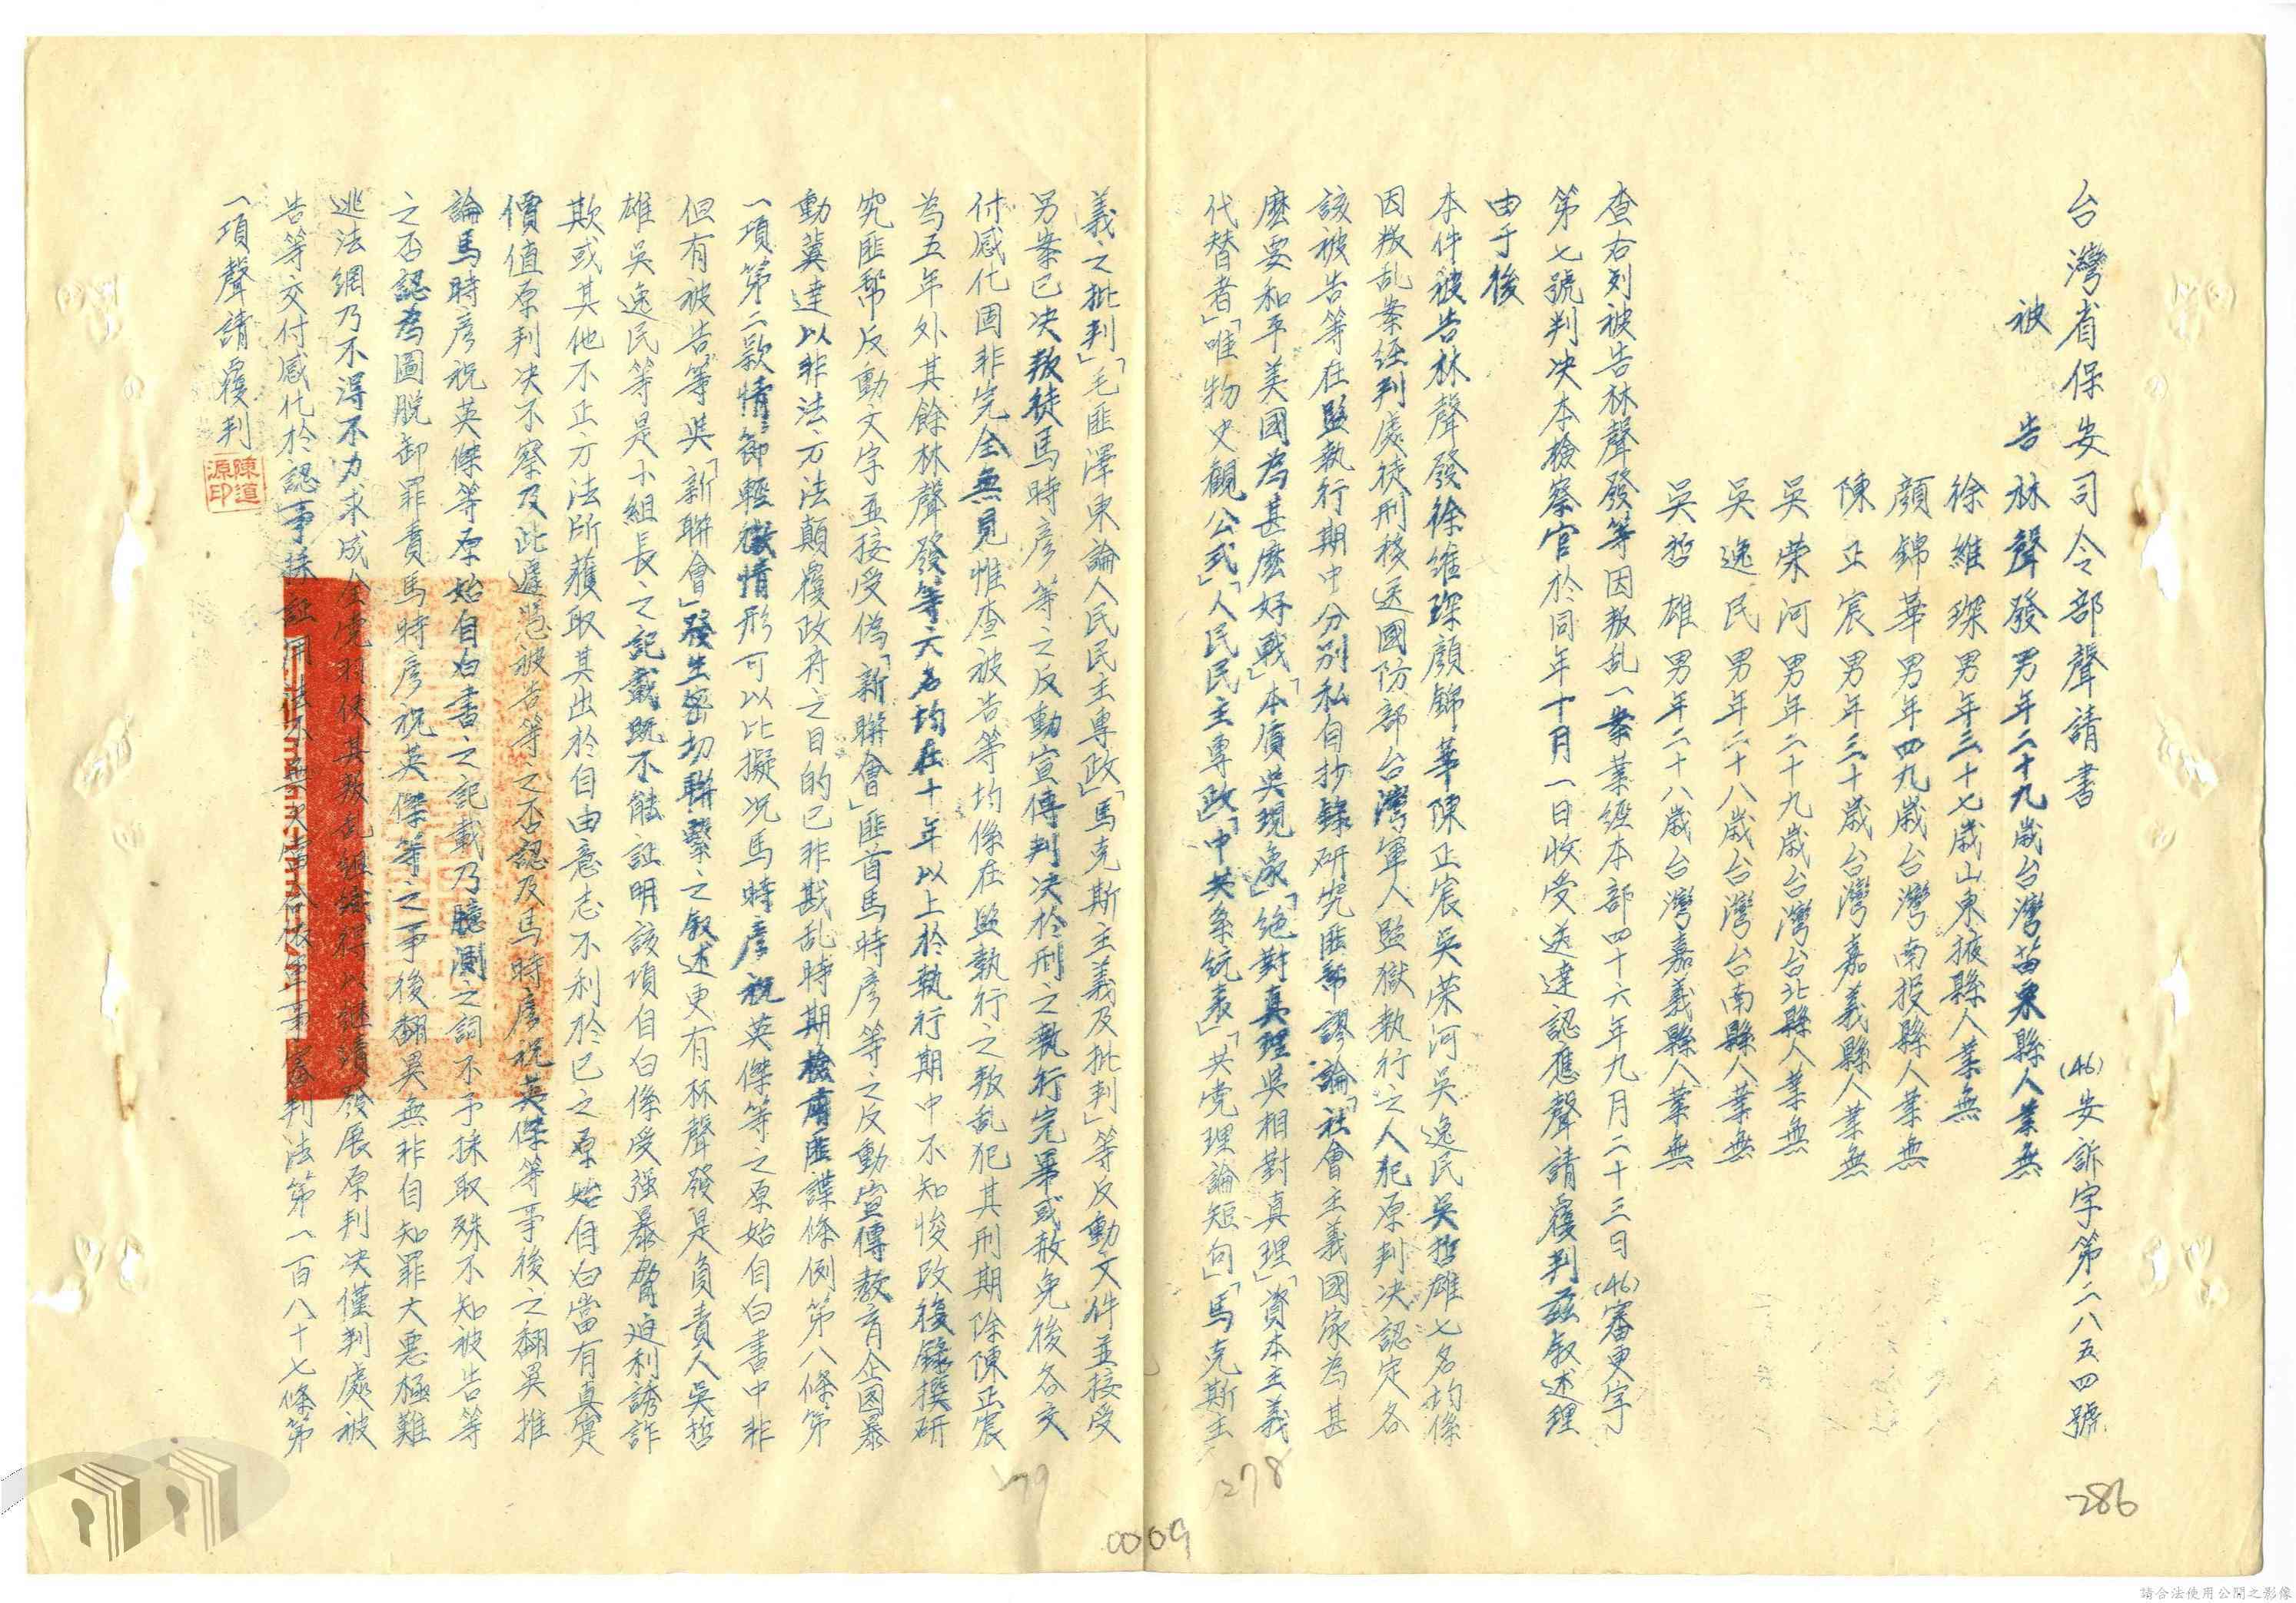 台灣省保安司令部聲請書 (46)安訴字第二八五四號
被告 林聲發 男年二十九歲台灣苗栗縣人業無
徐維琛 男年三十七歲山東掖縣人業無
顏錦華 男年四九歲台灣南投縣人業無
陳正宸 男年三十歲台灣嘉義縣人業無
吳榮河 男年二十九歲台灣台北縣人業無
吳逸民 男年二十八歲台灣台南縣人業無
吳哲雄 男年二十八歲台灣嘉義縣人業無
查右列被告林聲發等因叛乱一案業經本部四十六年九月二十三日(46)審更字
第七號判決本檢察官於同年十月一日收受送達認應聲請覆判茲叙述理
由于後
本件被告林聲發徐維琛顏錦華陳正宸吳榮河吳逸民吳哲雄七名均係
因叛乱案經判處徒刑核送國防部台灣軍人監獄執行之人犯原判決認定各
該被告等在監執行期中分別私自抄錄研究匪幫謬論「社會主義國家為甚
麼要和平美國為甚麼好戰」「本質吳現象」「絕對真理吳相對真理」「資本主義
代替者」「唯物史觀公式」「人民民主專政」「中共系統表」「共党理論短句」「馬克斯主
義之批判」「毛匪澤東論人民民主專政」「馬克斯主義及批判」等反動文件並接受
另案已決叛徒馬時彥等之反動宣傳判決於刑之執行完畢或赦免後各交
付感化固非完全無見惟查被告等均係在監執行之叛乱犯其刑期除陳正宸
為五年外其餘林聲發等六名均在十年以上於執行期中不知悛改復錄撰研
究匪幫反動文字並接受偽「新聯會」匪首馬時彥等之反動宣傳教育企圖暴
動冀達以非法方法顛覆政府之目的已非戡乱時期檢肅匪諜條例第八條第
一項第二款情節輕微情形可以比擬况馬時彥祝英傑等之原始自白書中非
但有被告等吳「新聯會」發生密切聯繫之叙述更有林聲發是負責人吳哲
雄吳逸民等是小組長之記載既不能証明該項自白係受强暴脅迫利誘詐
欺或其他不正方法所獲取其出於自由意志不利於已之原始自白當有真實
價值原判決不察及此遽憑被告等之否認及馬時彥祝英傑等事後之翻異推
論馬時彥祝英傑等原始自白書之記載乃臆測之詞不予採取殊不知被告等
之否認為圖脫卸罪責馬時彥祝英傑等之事後翻異無非自知罪大惡極難
逃法網乃不得不力求成全党羽使其叛乱組織得以継續發展原判決僅判處被
告等交付感化於認事採証用法不無欠當合依軍事審判法第一百八十七條第
一項聲請覆判
陳道源印
286
278
79
0009
請合法使用公開之影像